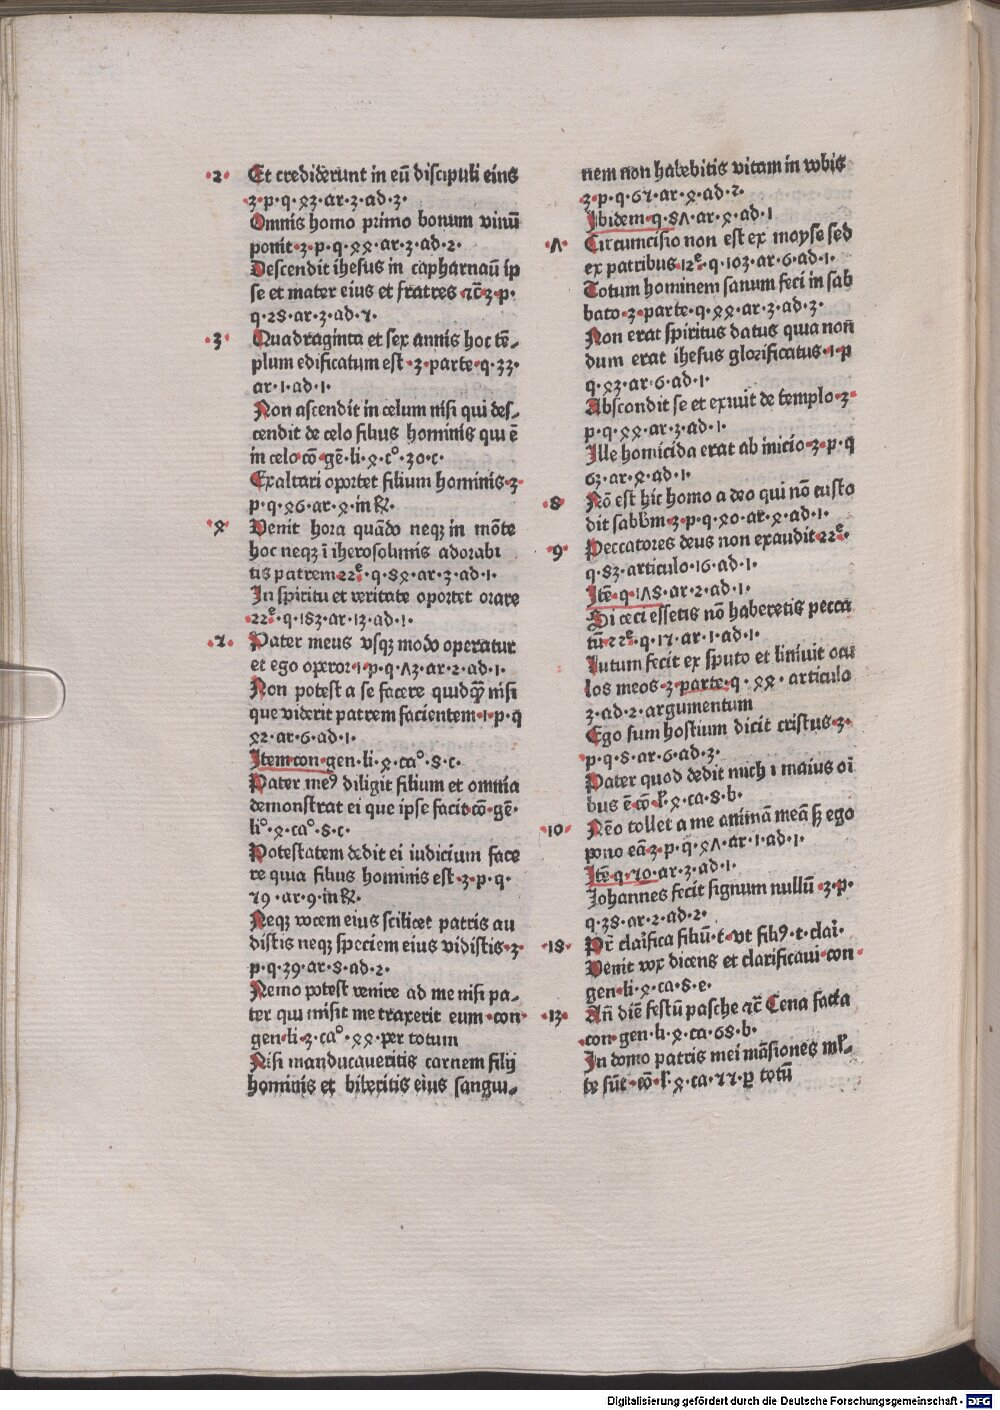 ·2· Et crediderunt in eū discipuli eius
·3·p·q·43·ar·3·ad·3·
Omnis homo primo bonum vinū
ponit·3·p·q·44·ar·3·ad·2·
Descendit ihesus in capharnaū ip
se et mater eius et fratres ⁊c̄·3·p·
q·28·ar·3·ad·5·
·3· Quadraginta et sex annis hoc tē⸗
plum edificatum est·3·parte·q·33·
ar·1·ad·1·
Non ascendit in celum nisi qui des⸗
cendit de celo filius hominis qui ē
in celo·cō·gē·li·4·c°·30·c·
Exaltari oportet filium hominis·3·
p·q·46·ar·4·in ꝶ·
·4· Venit hora quādo neqꝫ in mōte
hoc neqꝫ ī iherosolimis adorabi
tis patrem·22ͤ·q·84·ar·3·ad·1·
In spiritu et veritate oportet orare
·22ͤ·q·183·ar·13·ad·1·
·5· Pater meus vsqꝫ modo operatur
et ego operor·1·p·q·73·ar·2·ad·1·
Non potest a se facere quidqꝫ̄ nisi
que viderit patrem facientem·1·p·q
42·ar·6·ad·1·
Item·con·gen·li·4·ca°·8·c·
Pater meꝰ diligit filium et omnia
demonstrat ei que ipse facit·cō·gē·
li°·4·ca°·8·c·
Potestatem dedit ei iudicium face
re quia filius hominis est·3·p·q·
59·ar·9·in ꝶ·
Neqꝫ vocem eius scilicet patris au
distis neqꝫ speciem eius vidistis·3·
p·q·39·ar·8·ad·2·
Nemo potest venire ad me nisi pa⸗
ter qui misit me traxerit eum·con·
gen·li·3·ca°·44·per totum
Nisi manducaveritis carnem filij
hominis et biberitis eius sangui⸗
nem non habebitis vitam in vobis
3·p·q·65·ar·4·ad·2·
Ibidem·q·87·ar·4·ad·1
·7· Circumcisio non est ex moyse sed
ex patribus·12ͤ·q·103·ar·6·ad·1·
Totum hominem sanum feci in sab
bato·3·parte·q·44·ar·3·ad·3·
Non erat spiritus datus quia non̄
dum erat ihesus glorificatus·1·p
q·43·ar·6·ad·1·
Abscondit se et exiuit de templo·3·
p·q·44·ar·3·ad·1·
Ille homicida erat ab inicio·3·p·q
63·ar·4·ad·1·
·8· Nō est hic homo a deo qui nō custo
dit sabb̄m·3·p·q·40·ar·4·ad·1·
·9· Peccatores deus non exaudit·22ͤ·
q·83·articulo·16·ad·1·
Itē·q·178·ar·2·ad·1·
Si ceci essetis nō haberetis pecca
tū·22ͤ·q·15·ar·1·ad·1·
Lutum fecit ex sputo et liniuit ocu
los meos·3·parte·q·44·articulo
3·ad·2·argumentum
Ego sum hostium dicit cristus·3·
p·q·8·ar·6·ad·3·
Pater quod dedit mich i maius oī
bus ē·cō·l̄·4·ca·8·b·
·10· Nēo tollet a me animā meā sꝫ ego
pono eā·3·p·q·47·ar·1·ad·1·
Itē·q·50·ar·3·ad·1·
Iohannes fecit signum nullū·3·p·
q·38·ar·2·ad·2·
·18· Pr̄ clarifica filiū·t·vt filiꝰ·t·clari·
Venit vox dicens et clarificaui·con·
gen·li·4·ca·8·e·
·13· An̄ diē festū pasche ⁊c̄ Cena facta
·con·gen·li·4·ca·68·b·
In domo patris mei māsiones ml̄⸗
te sūt·cō·l̄·4·ca·55·ꝑ totū
Digitalisierung gefördert durch die Deutsche Forschungsgemeinschaft - DFG